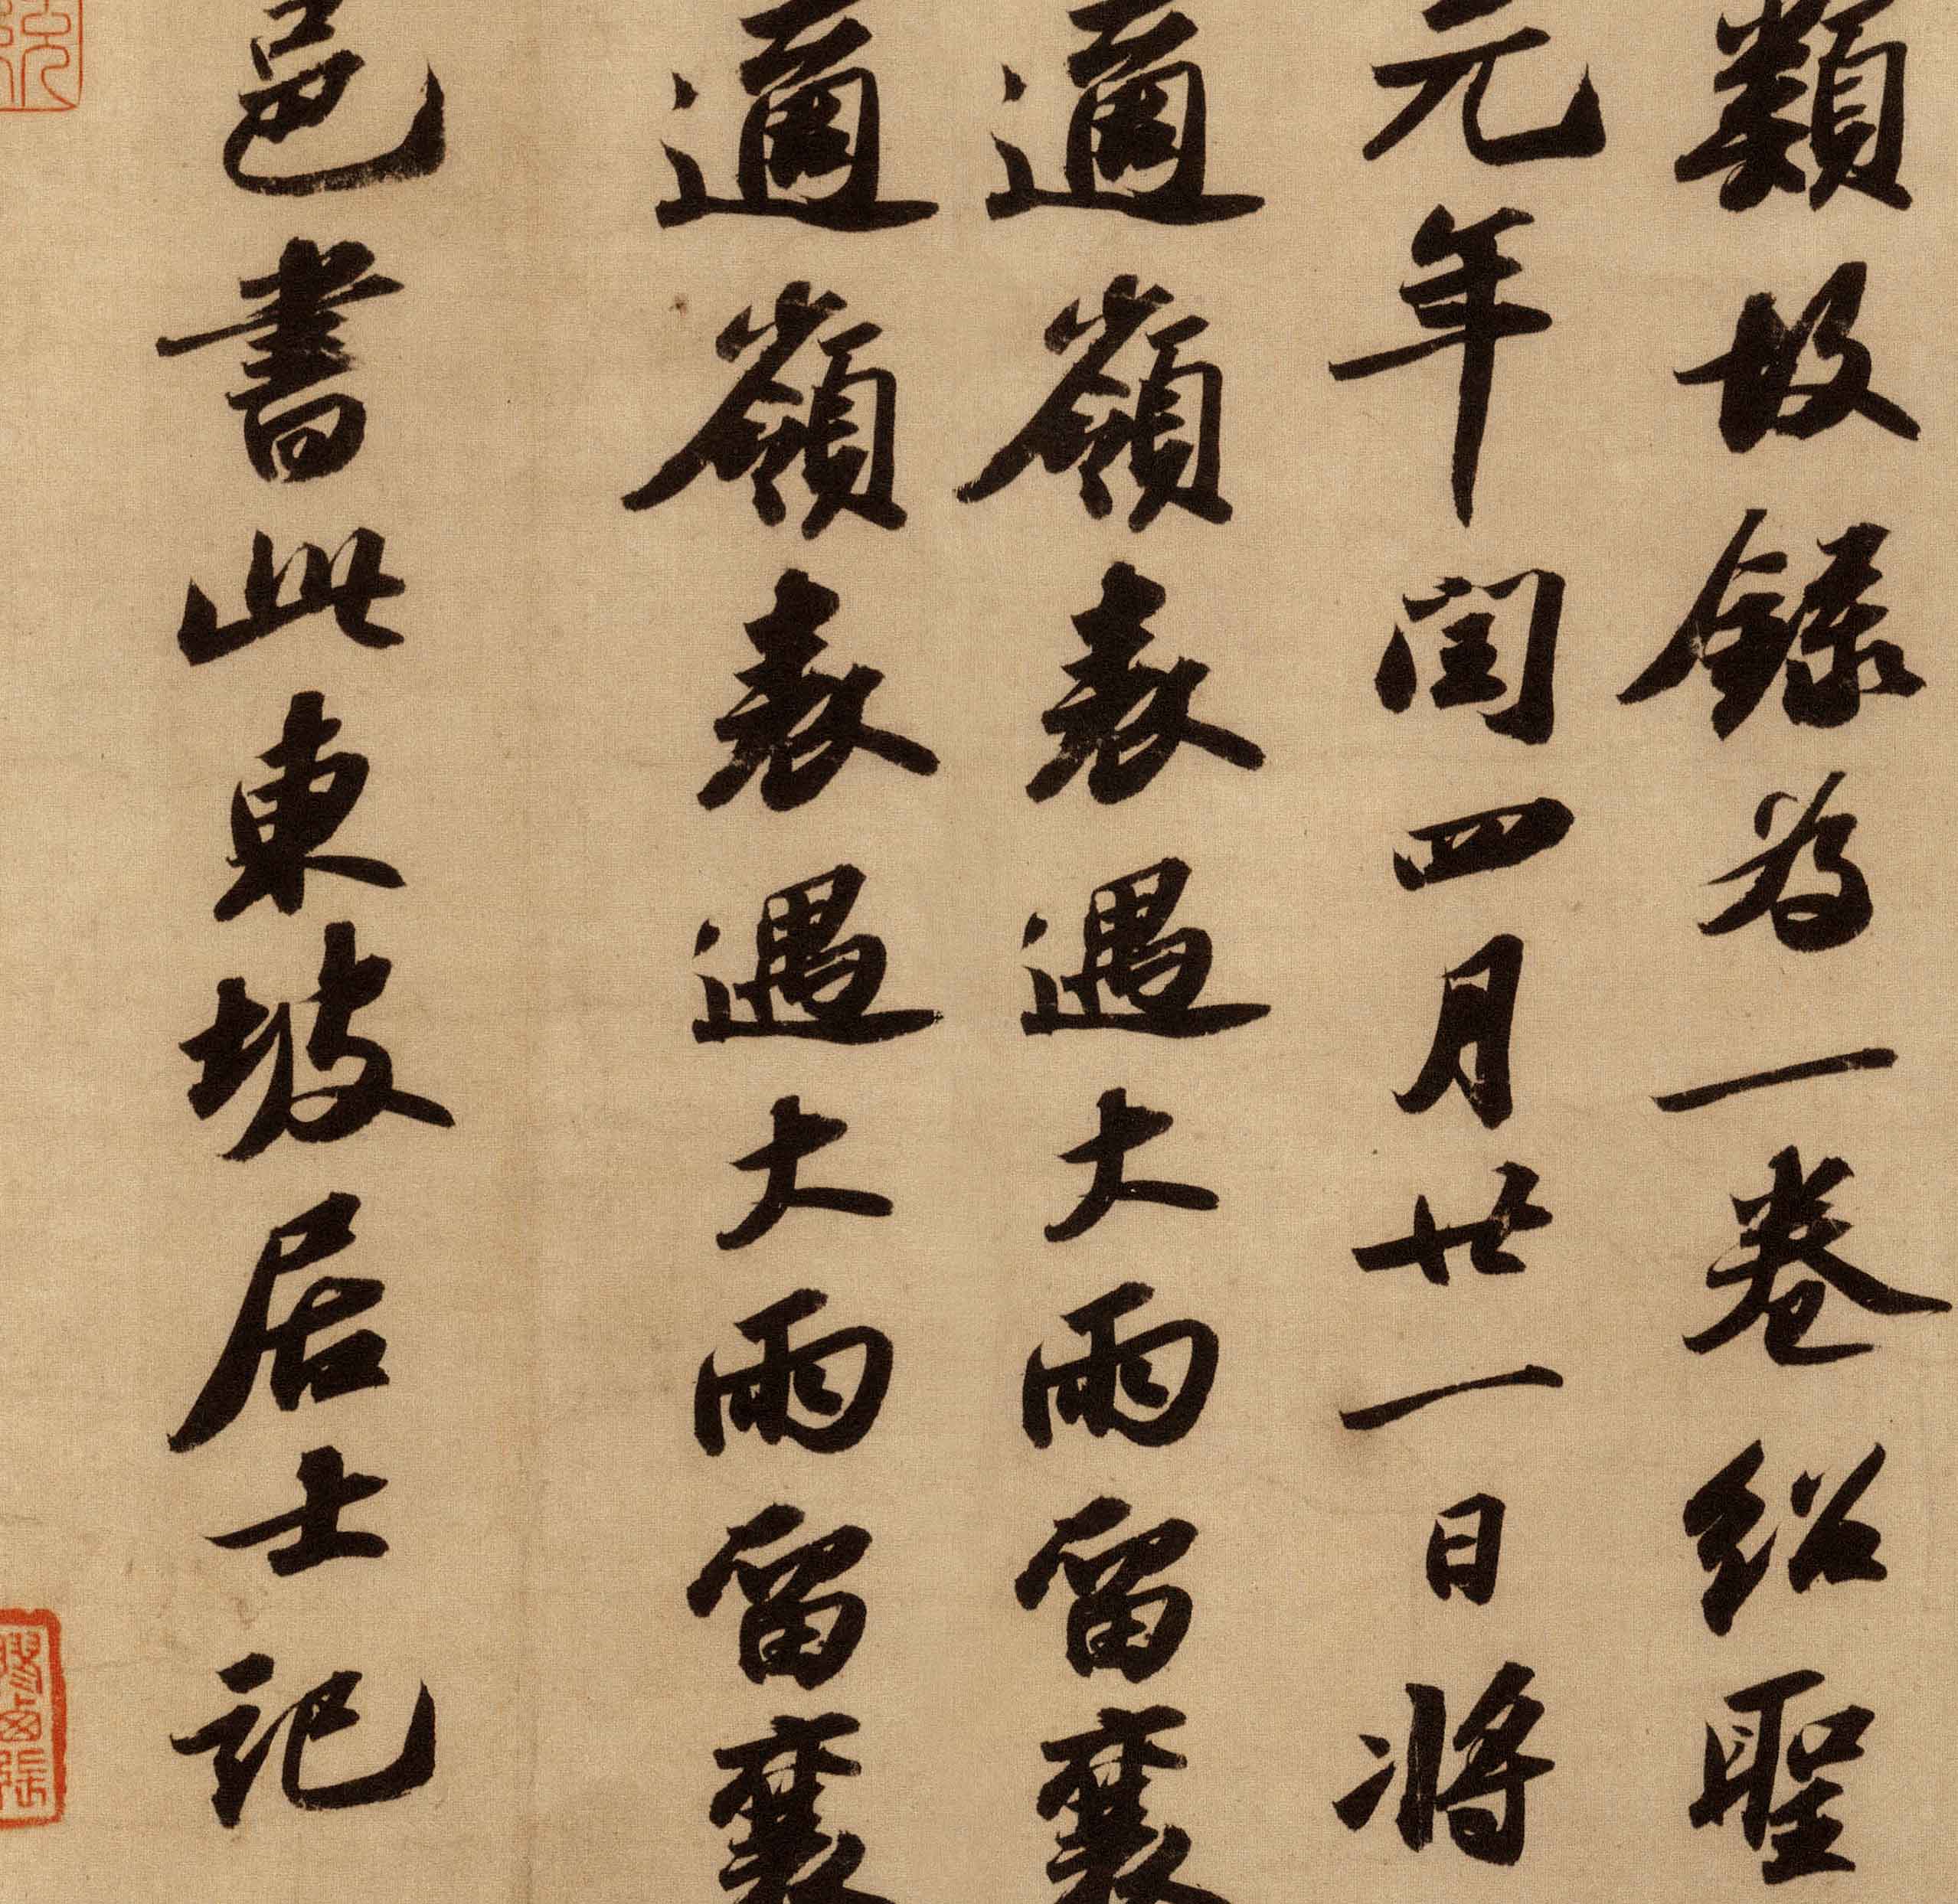 類故錄为一卷紹聖
元年閏四月廿一日將
適嶺表遇大雨留襄
適嶺表遇大雨留襄
邑書此東坡居士記